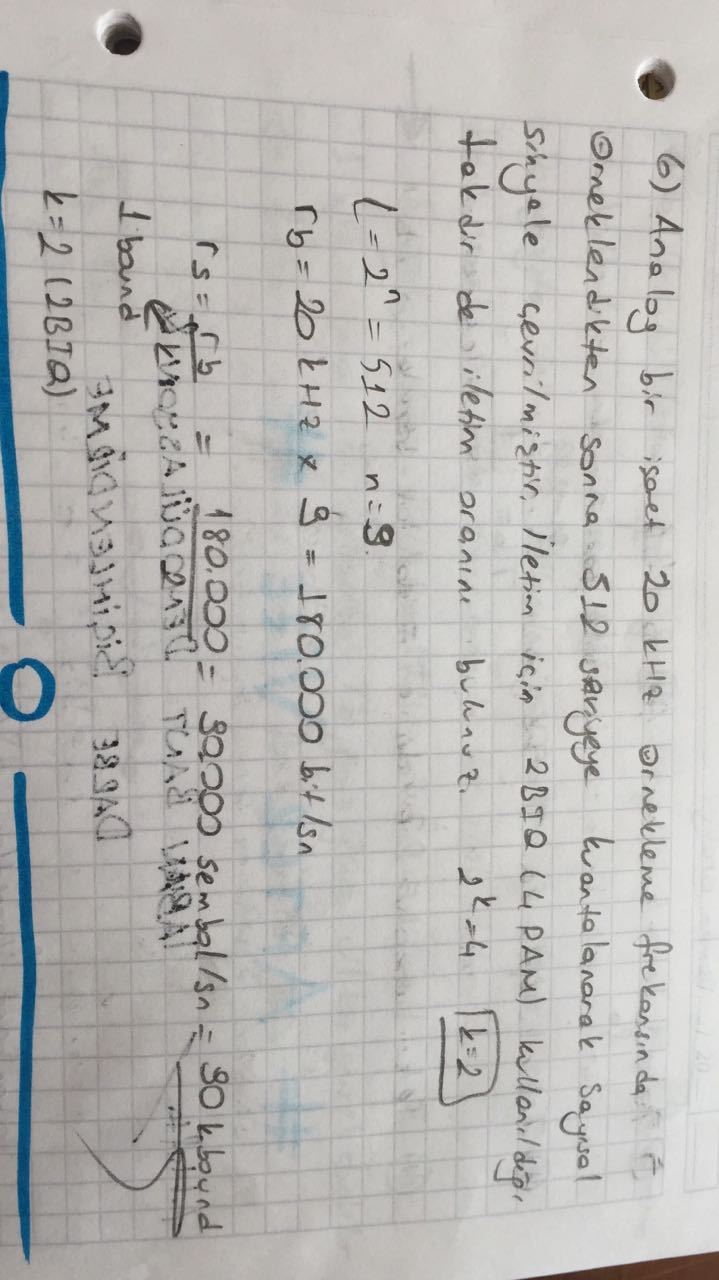 6) Analog bir işaet 20 kHz örnekleme frekansında
Örneklendikten sonra 512 seviyeye kuantalanarak sayısal
sinyale çevrilmiştir. İletim için 2B1Q (4 PAM) kullanıldığı
takdirde iletim oranını bulunuz. 2^k=4 k=2
L = 2^n = 512 n=9
rb = 20 kHz x 9 = 180.000 bit/sn
rs = rb/k = 180.000 = 90.000 sembol/sn = 90 kbaund
1 baund
k=2 (2B1Q)